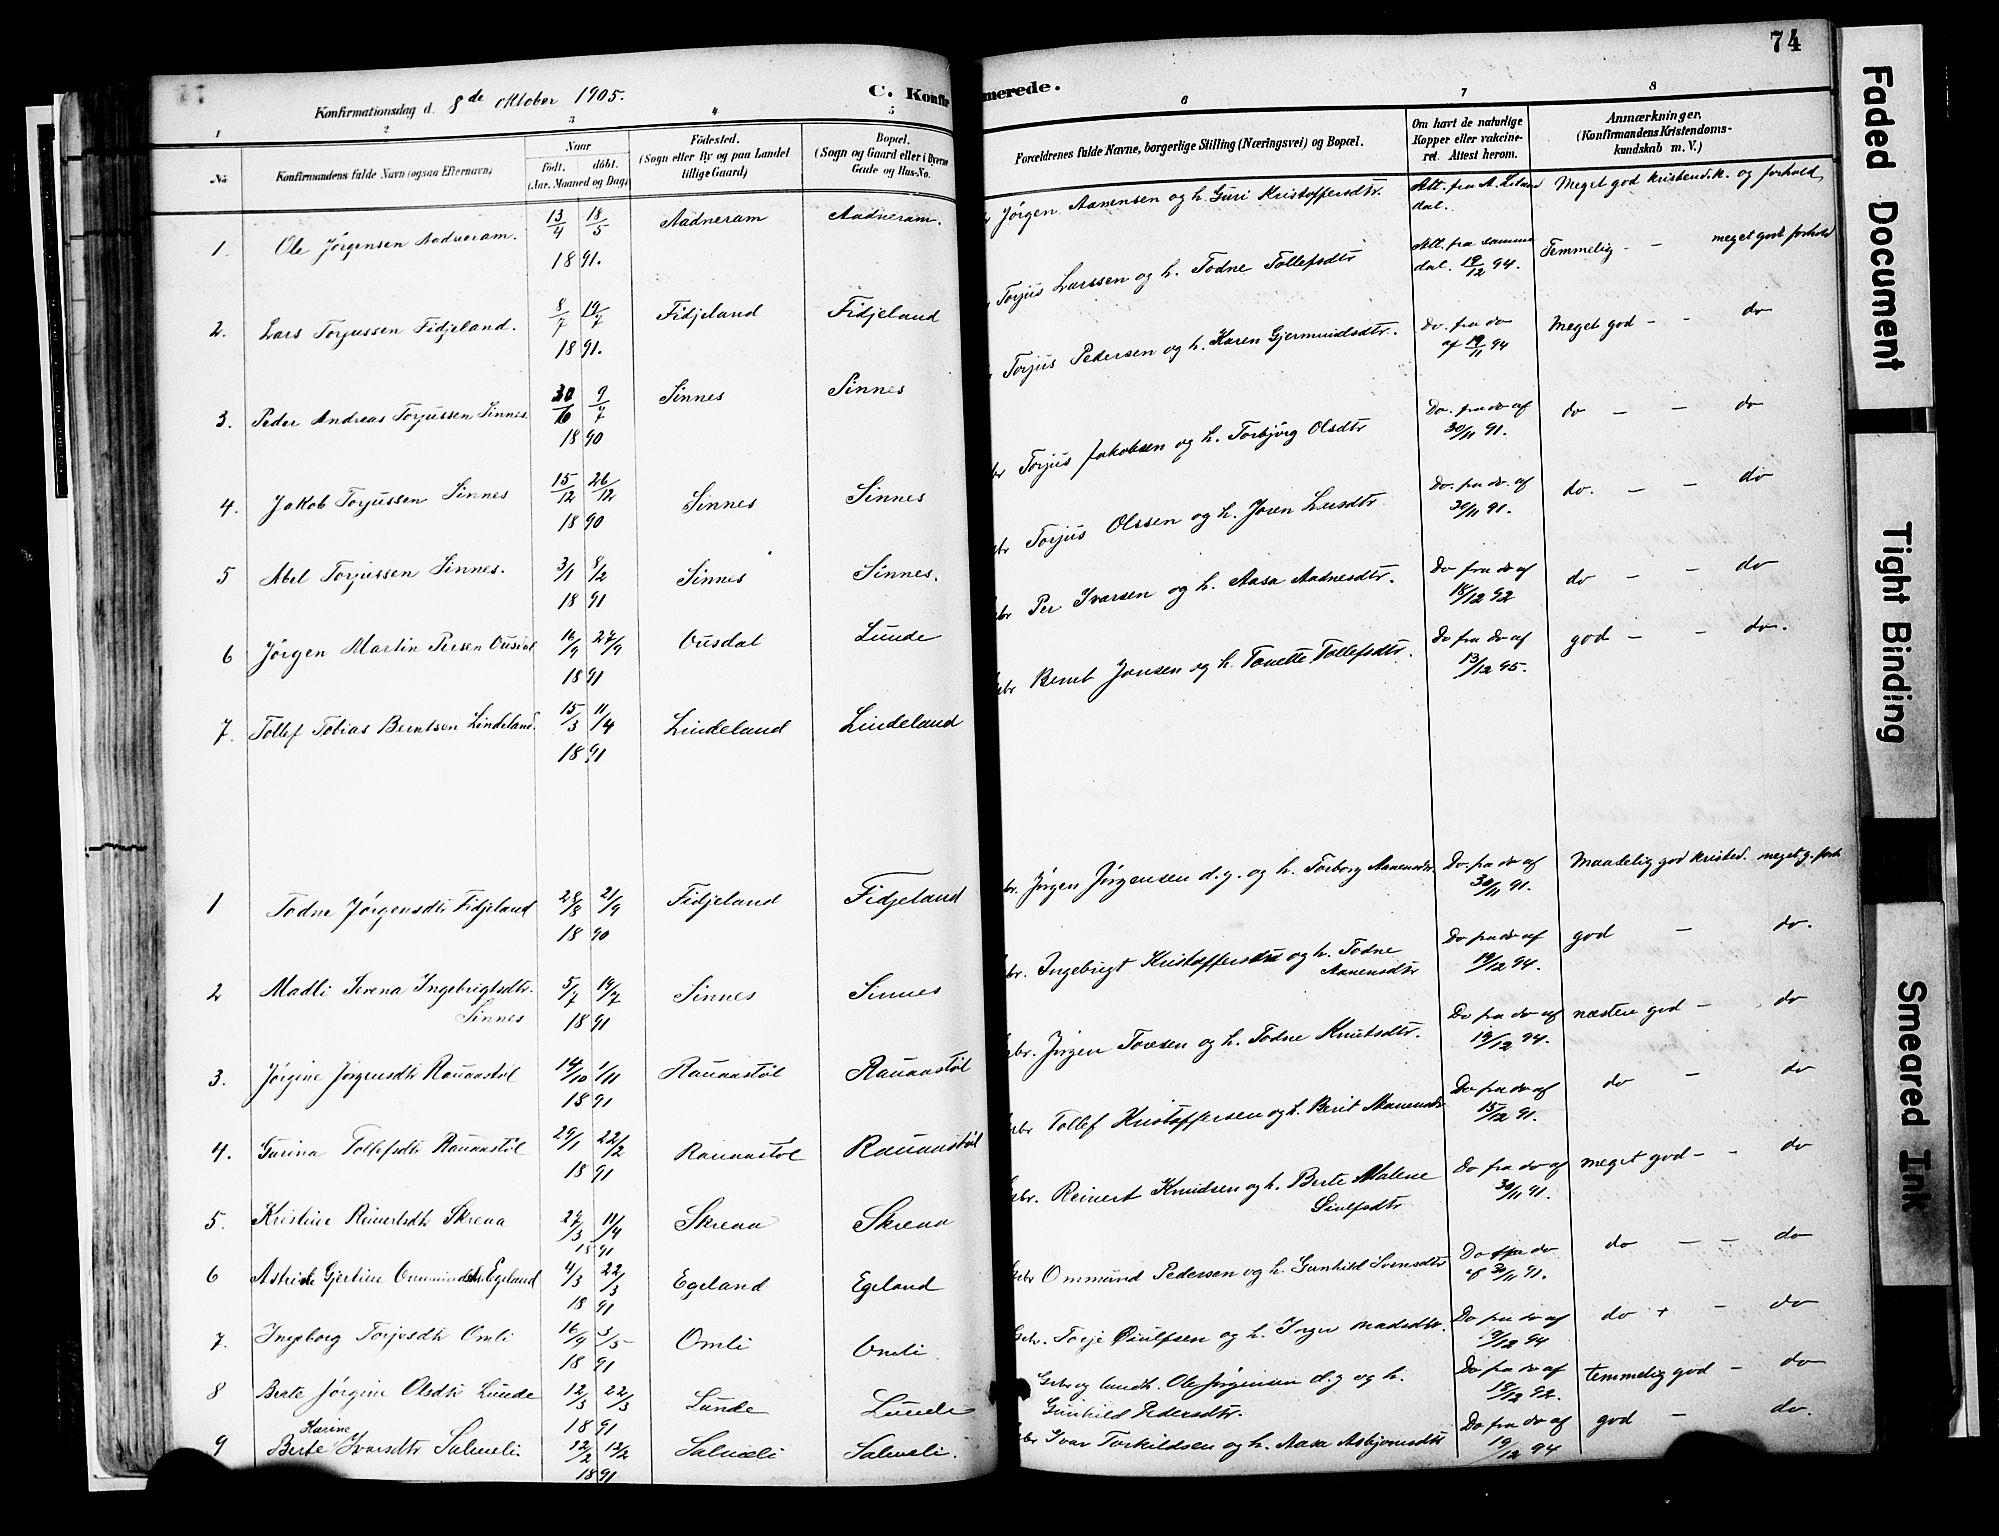 74
Konfirmationsdag d. 8de Oktober 1905.
C. Konfir
merede.
1 2 3 4 5 6 7 8
No
Konfirmandens fulde Navn (ogsaa Efternavn)
Naar
født. døbt.
(Aar. Maaned og Dag)
Fødested.
(Sogn eller By og paa Landet
tillige Gaard)
Bopæl.
(Sogn og Gaard eller i Byerne
Gade og Hus-No.
Forældrenes fulde Navne, borgerlige Stilling (Næringsvei) og Bopæl.
Om havt de naturlige
Kopper eller vakcine-
ret. Attest herom.
Anmærkninger,
(Konfirmandens Kristendoms-
kundskab m. V.)
1. Ole Jørgensen Aadneram. 13/4 18/5 1891. Aadneram Aadneram. Jørgen Aanensen og h. Guri Kristoffersdtr. Att. fra dal. Meget god kristend.k. og forhold
2. Lars Torjussen Fidjeland. 8/7 19/7 1891. Fidjeland Fidjeland Torjus Larssen og h. Todne Tollefsdtr Att. fra samme dal. 19/12 94. Temmelig - - meget godt forhold
3. Peder Andreas Torjussen Sinnes. 30/6 9/7 1890 Sinnes Sinnes Torjus Pedersen og h. Karen Gjermundsdtr. Do. fra do af 19/11 94 Meget god - - do
4. Jakob Torjussen Sinnes 15/12 26/12 1890 Sinnes Sinnes Torjus Jakobsen og h. Torbjørg Olsdtr Do. fra do af 30/11 91. do - - do
5 Abel Torjussen Sinnes. 3/1 8/2 1891 Sinnes Sinnes. Torjus Olssen og h. Joren Do. fra do. af 30/11 91. do. - - do
6 Jørgen Martin Persen Ousdal 16/9 27/9 1891 Ousdal Lunde Per Ivarsen og h. Aasa Aadnesdtr. Do fra do af 18/12 92 do - - do
7. Tollef Tobias Berntsen Lindeland. 15/3 11/4 1891 Lindeland Lindeland Bernt Jonsen og h. Tonette Tollefsdtr. Do fra do af 13/12 95. god - - do.
1 Todne Jørgensdtr Fidjeland 28/8 21/9 1890 Fidjeland Fidjeland Jørgen Jørgensen d.y. og h. Torborg Aanensdtr. Do. fra do af 30/11 91. Maadelig god kristed. meget g. forh.
2 Madli Serena Ingebrigtsdtr. Sinnes 5/7 19/7 1891 Sinnes Sinnes Ingebrigt Kristoffersen og h. Todne Aanensdtr Do fra do af 19/12 94. god - do.
3. Jørgine Jørgensdtr Rauaastøl 14/10 1/11 1891 Rauaastøl Rauaastøl Jørgen Tovesen og h. Todne Knutsdtr. Do fra do af 19/12 94. næsten god - do
4. Gurina Tollefsdtr Rauaastøl 29/1 22/2 1891 Rauaastøl Rauaastøl Tollef Kristoffersen og h. Berit Aanensdtr Do fra do af 15/12 91. do - do
5. Kristine Reinertsdtr Skreaa 27/3 11/4 1891 Skreaa Skreaa Gbr. Reinert Knudsen og h. Berte Malene Do fra do af 30/11 91. meget god - - do
6 Astride Gjertine Ommundsdtr Egeland 4/3 22/3 1891 Egeland Egeland Gbr Ommund Pedersen og h. Gunhild Svensdtr Do fra do af 30/11 91. do - - do
7. Ingeborg Torjesdtr Omli 16/4 3/5 1891 Omli Omli Gbr. Torje og h. Inger Madsdtr. Do fra do af 19/12 94 do + - do
8 Berte Jørgine Olsdtr Lunde 12/3 22/3 1891 Lunde Lunde Gbr og landh. Ole Jørgensen d.y og h. Gunhild Pedersdtr. Do fra do af 19/12 92. temmelig god - do
9 Berte Karine Ivarsdtr Salmeli 12/2 1891 Salmeli Salmeli. Gbr Ivar Torkildsen og h. Aasa Asbjørnsdtr Do fra do af 19/12 94 god - do.
Faded Document
Tight Binding
Smeared Ink